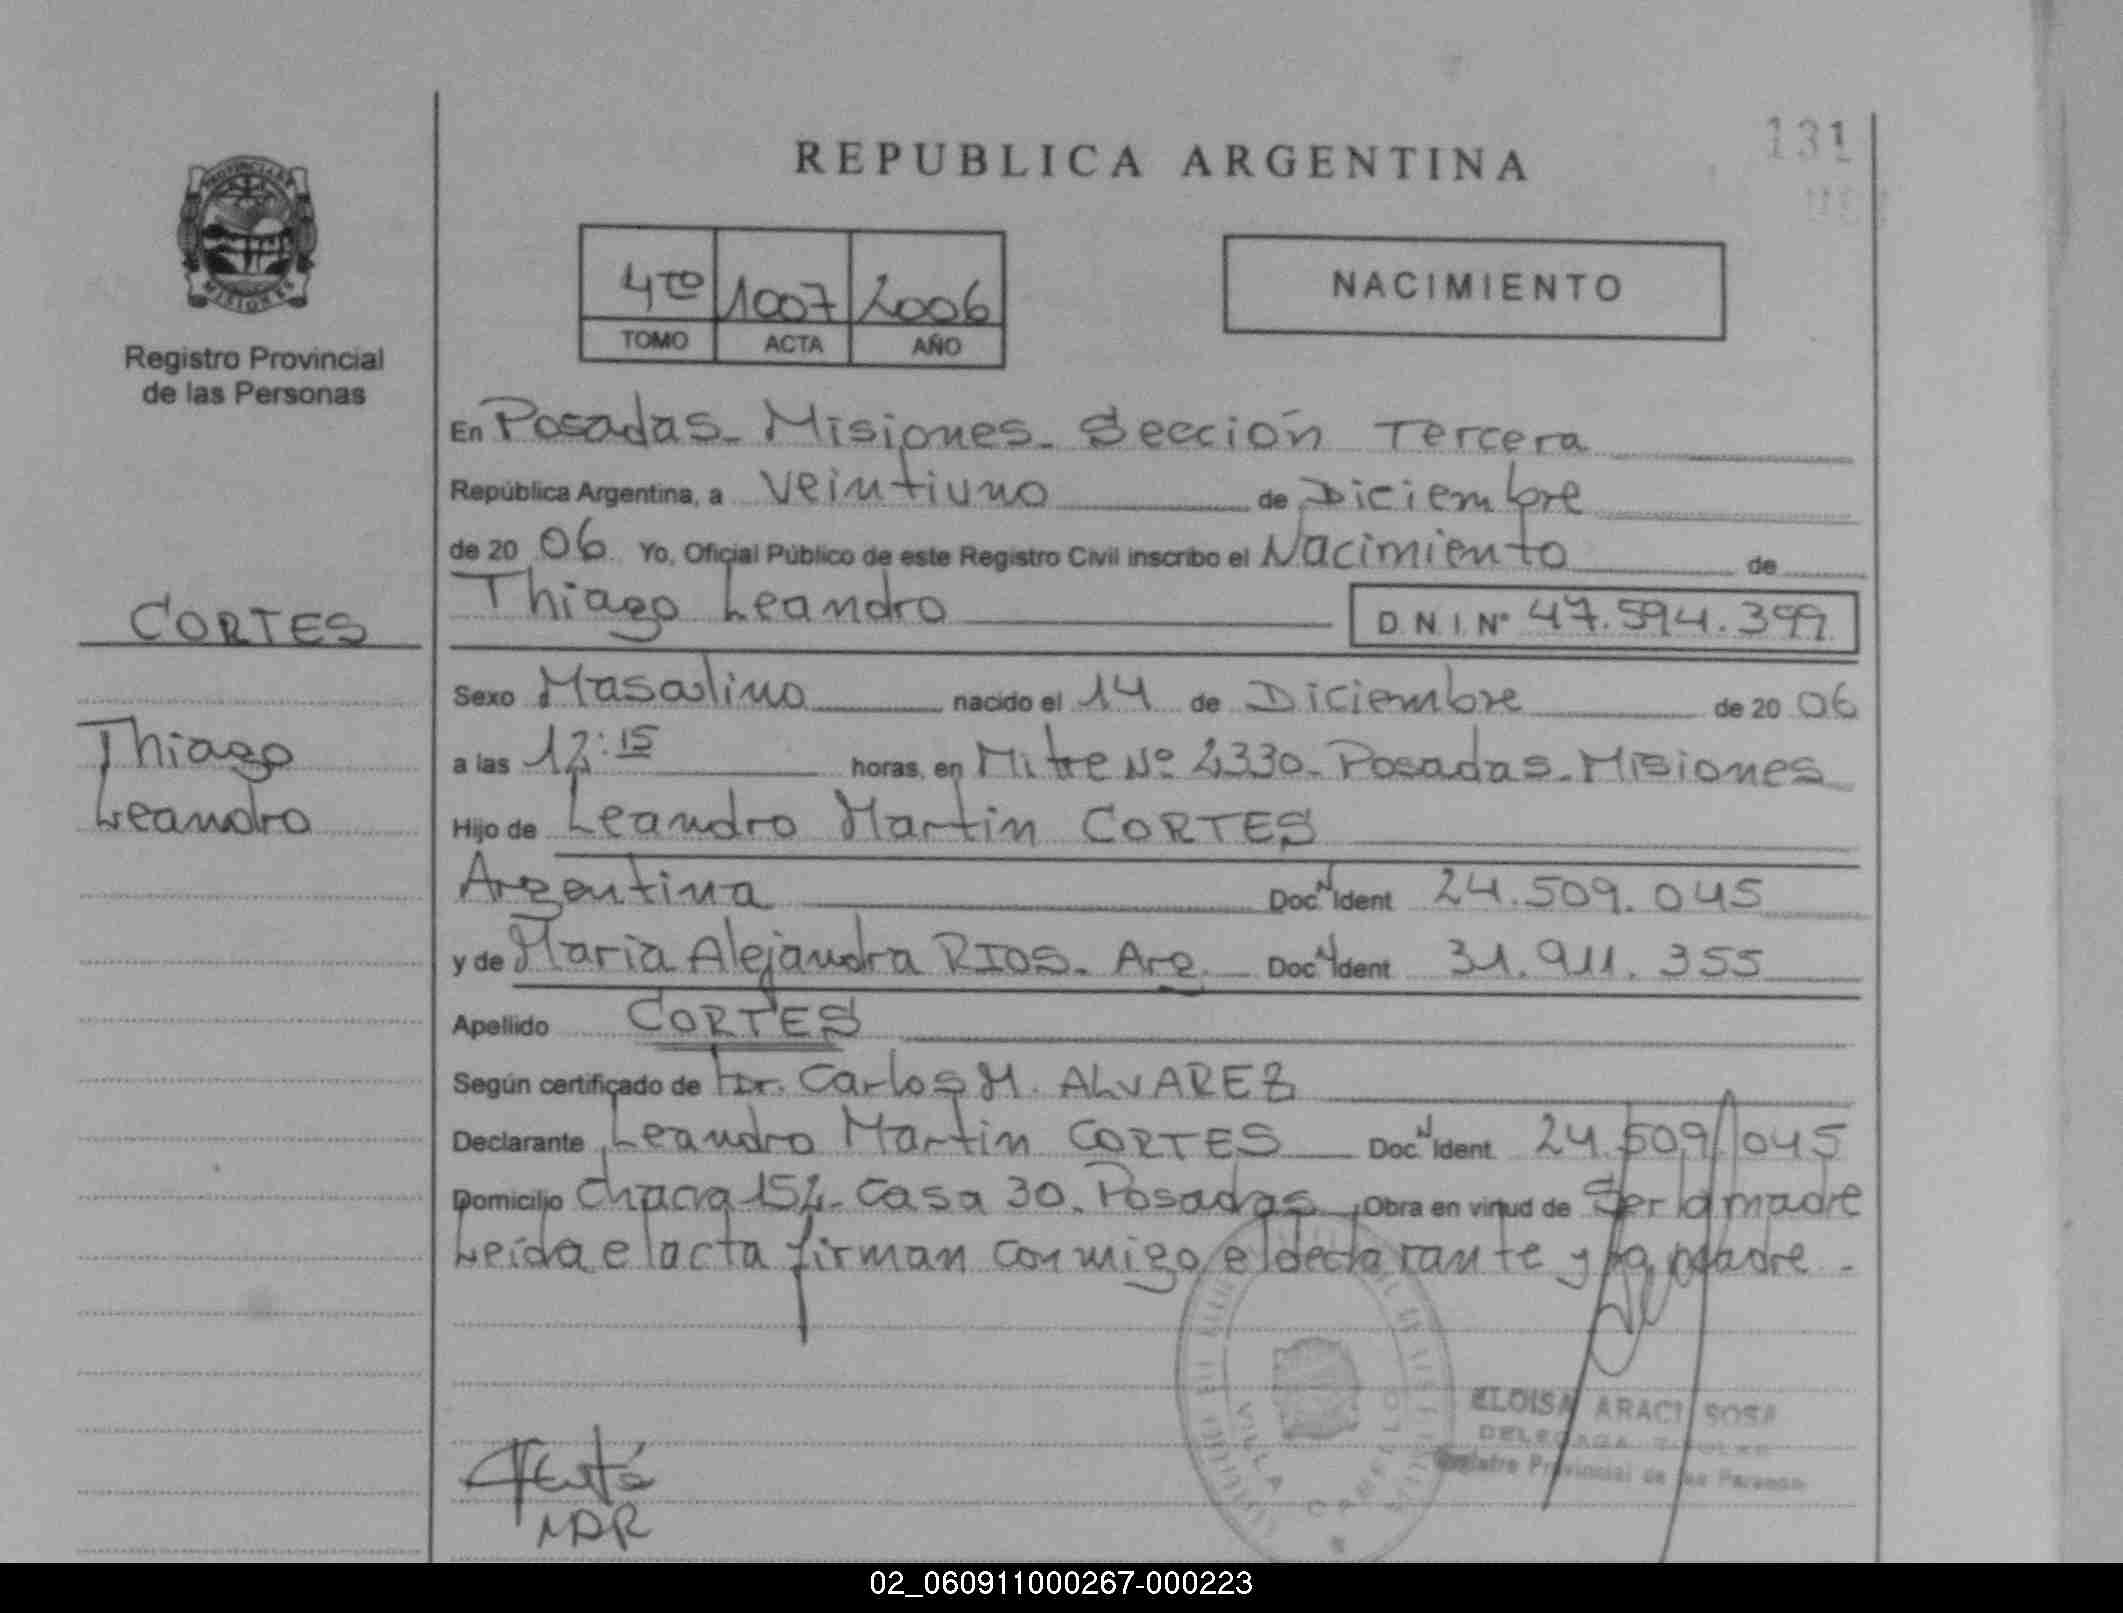 131
REPUBLICA ARGENTINA
PROVINCIA DE
MISIONES
Registro Provincial
de las Personas
4to 1007 2006
TOMO ACTA AÑO
NACIMIENTO
En Posadas - Misiones - Sección Tercera
República Argentina, a veintiuno de Diciembre
de 2006. Yo, Oficial Público de este Registro Civil inscribo el Nacimiento de
Thiago Leandro D.N.I. Nº 47.594.399
CORTES
Thiago
Leandro
Sexo Masculino nacido el 14 de Diciembre de 2006
a las 12:15 horas, en Mitre Nº 2330 - Posadas - Misiones
Hijo de Leandro Martin CORTES
Argentina Doc. N Ident 24.509.045
y de Maria Alejandra RIOS - Arg. Doc. N Ident 31.911.355
Apellido CORTES
Según certificado de Dr. Carlos M. ALVAREZ
Declarante Leandro Martin CORTES Doc. N Ident 24.509.045
Domicilio Chacra 152 - Casa 30. Posadas Obra en virtud de Ser la madre
Leída el acta firman conmigo el declarante y la madre -
VILLA CABELLO
ELOISA ARACI SOSA
DELEGADA TITULAR
Registro Provincial de las Personas
MDR
02_060911000267-000223